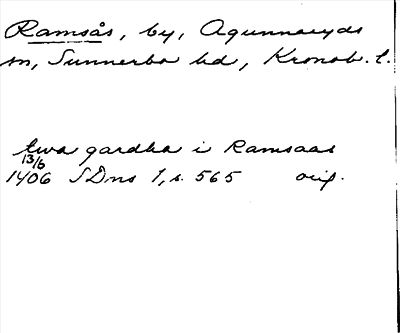 Ramsås, by, Agunnaryds
sn, Sunnerbo hd, Kronob. l.
twa gardha i Ramsaas
13/6
1406 SDns 1, s. 565 orig.